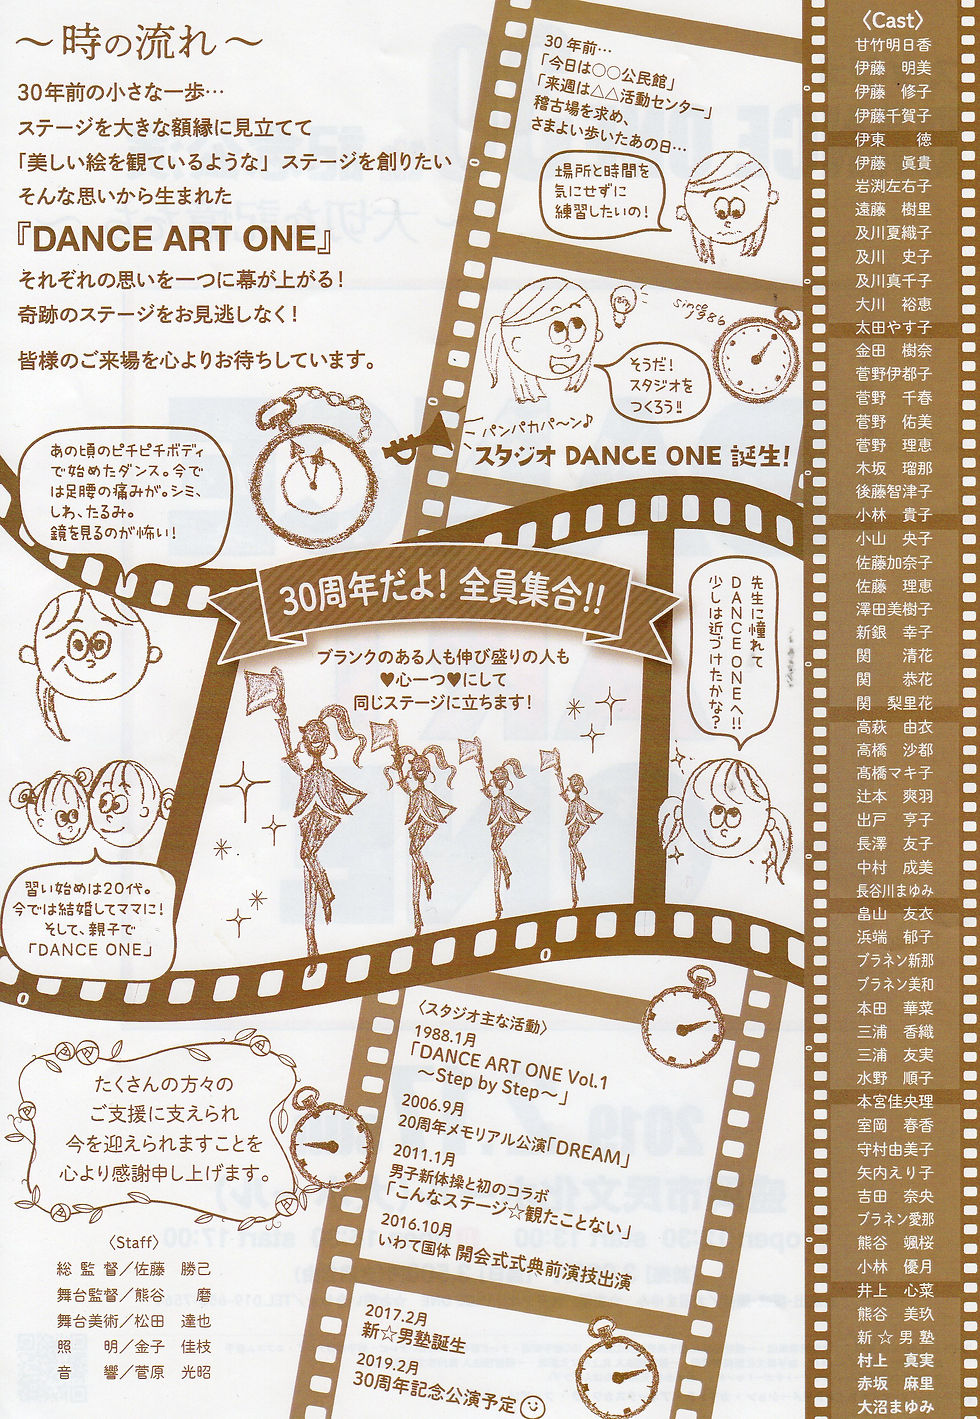 ～時の流れ～
30年前の小さな一歩…
ステージを大きな額縁に見立てて
「美しい絵を観ているような」ステージを創りたい
そんな思いから生まれた
『DANCE ART ONE』
それぞれの思いを一つに幕が上がる！
奇跡のステージをお見逃しなく！
皆様のご来場を心よりお待ちしています。
30年前…
「今日は○○公民館」
「来週は△△活動センター」
稽古場を求め、
さまよい歩いたあの日…
場所と時間を
気にせずに
練習したいの！
since
1986
そうだ！
スタジオを
つくろう!!
パンパカパ〜ン♪
スタジオ DANCE ONE 誕生！
あの頃のピチピチボディ
で始めたダンス。今で
は足腰の痛みが。シミ、
しわ、たるみ。
鏡を見るのが怖い！
30周年だよ！全員集合!!
ブランクのある人も伸び盛りの人も
♥心一つ♥にして
同じステージに立ちます！
先生に憧れて
DANCE ONEへ!!
少しは近づけたかな？
習い始めは20代。
今では結婚してママに！
そして、親子で
「DANCE ONE」
〈スタジオ主な活動〉
1988.1月
「DANCE ART ONE Vol.1
～Step by Step～」
2006.9月
20周年メモリアル公演「DREAM」
2011.1月
男子新体操と初のコラボ
「こんなステージ☆観たことない」
2016.10月
いわて国体 開会式式典前演技出演
2017.2月
新☆男塾誕生
2019.2月
30周年記念公演予定
たくさんの方々の
ご支援に支えられ
今を迎えられますことを
心より感謝申し上げます。
〈Staff〉
総監督／佐藤　勝己
舞台監督／熊谷　磨
舞台美術／松田　達也
照　明／金子　佳枝
音　響／菅原　光昭
〈Cast〉
甘竹明日香
伊藤　明美
伊藤　修子
伊藤千賀子
伊東　徳
伊藤　眞貴
岩渕左右子
遠藤　樹里
及川夏織子
及川　史子
及川真千子
大川　裕恵
太田やす子
金田　樹奈
菅野伊都子
菅野　千春
菅野　佑美
菅野　理恵
木坂　瑠那
後藤智津子
小林　貴子
小山　央子
佐藤加奈子
佐藤　理恵
澤田美樹子
新銀　幸子
関　清花
関　恭花
関　梨里花
高萩　由衣
高橋　沙都
髙橋マキ子
辻本　爽羽
出戸　亨子
長澤　友子
中村　成美
長谷川まゆみ
畠山　友衣
浜端　郁子
ブラネン新那
ブラネン美和
本田　華菜
三浦　香織
三浦　友実
水野　順子
本宮佳央理
室岡　春香
守村由美子
矢内えり子
吉田　奈央
ブラネン愛那
熊谷　颯桜
小林　優月
井上　心菜
熊谷　美玖
新☆男塾
村上　真実
赤坂　麻里
大沼まゆみ